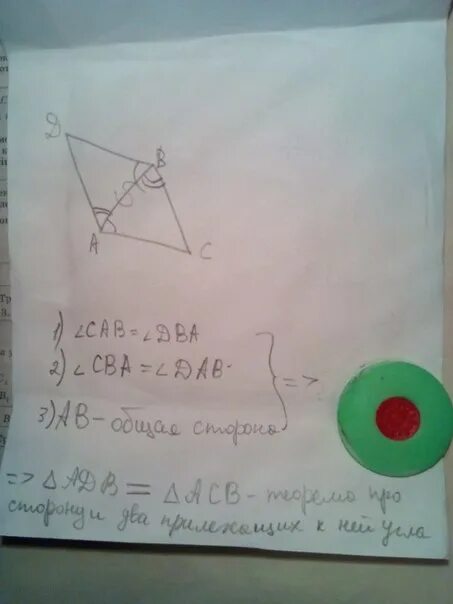 D
B
A
C
1) ∠CAB = ∠DBA
2) ∠CBA = ∠DAB
3) AB - общая сторона
=>
=> △ADB = △ACB - теорема про
сторону и два прилежащих к ней угла